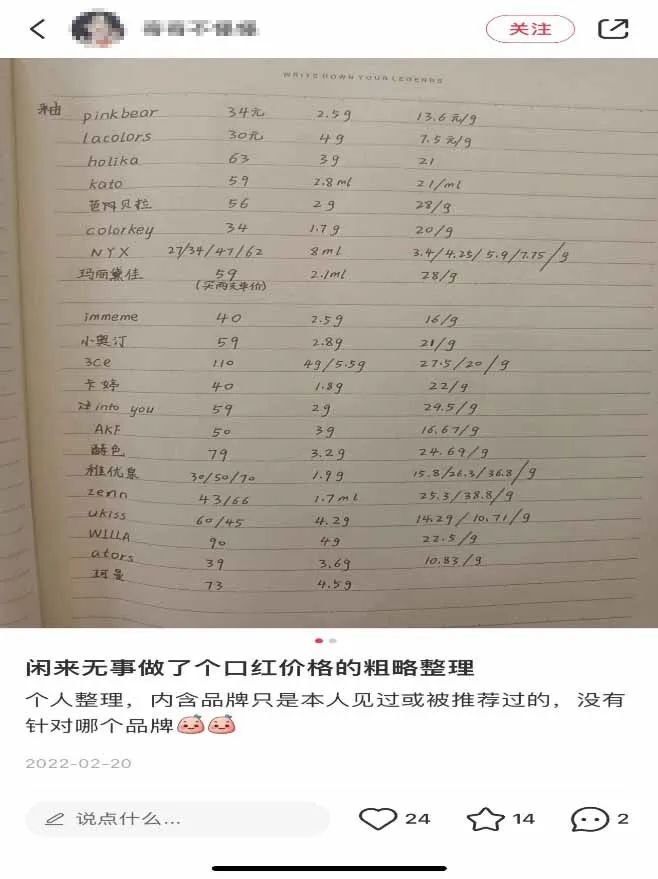 关注
WRITE DOWN YOUR LEGENDS
釉 pinkbear 34元 2.5g 13.6元/g
lacolors 30元 4g 7.5元/g
holika 63 3g 21
kato 59 2.8ml 21/ml
芭贝拉 56 2g 28/g
colorkey 34 1.7g 20/g
NYX 27/34/47/62 8ml 3.4/4.25/5.9/7.75/g
玛丽黛佳 59 2.1ml 28/g
(买两支单价)
immeme 40 2.5g 16/g
小奥汀 59 2.8g 21/g
3CE 110 4g/5.5g 27.5/20/g
卡婷 40 1.8g 22/g
into you 59 2g 29.5/g
AKF 50 3g 16.67/g
酵色 79 3.2g 24.69/g
稚优泉 30/50/70 1.9g 15.8/26.3/36.8/g
zenn 43/66 1.7ml 25.3/38.8/g
ukiss 60/45 4.2g 14.29/10.71/g
WILLA 90 4g 22.5/g
ators 39 3.6g 10.83/g
珂曼 73 4.5g
闲来无事做了个口红价格的粗略整理
个人整理，内含品牌只是本人见过或被推荐过的，没有
针对哪个品牌
2022-02-20
说点什么... 24 14 2